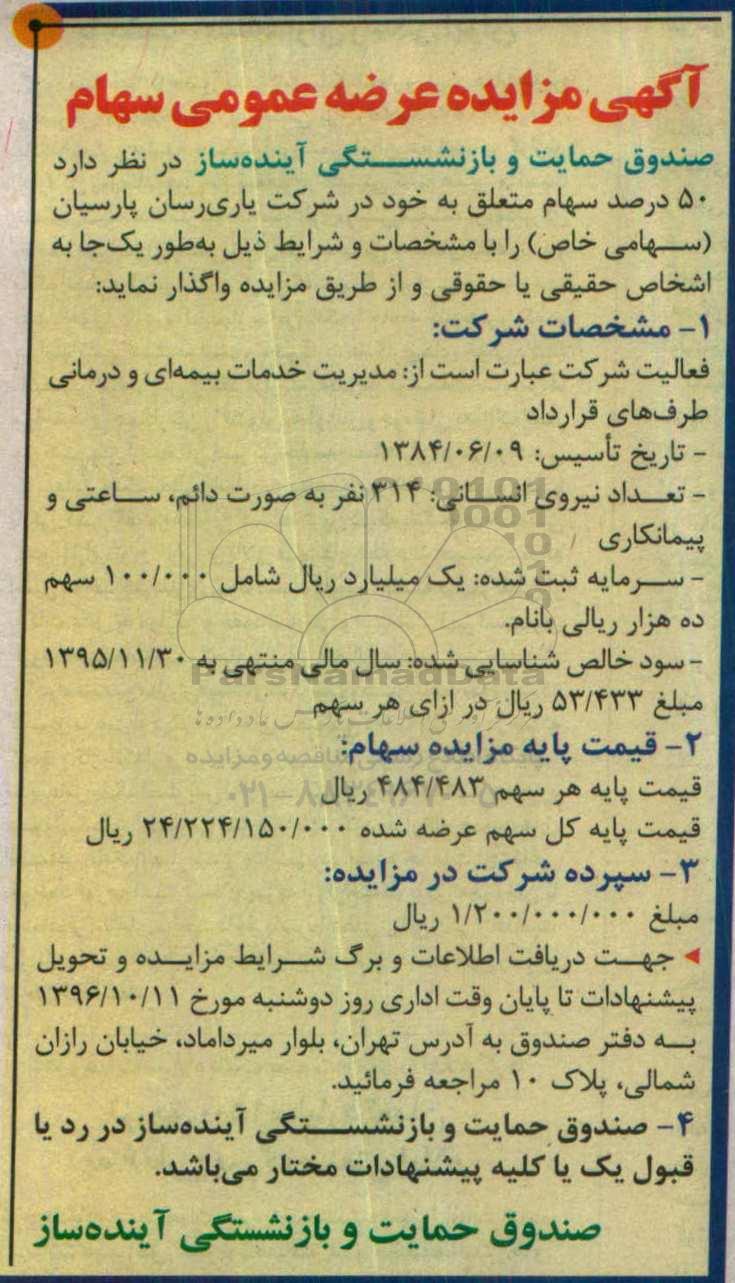 آگهی مزایده عرضه عمومی سهام
صندوق حمایت و بازنشستگی آینده‌ساز در نظر دارد
۵۰ درصد سهام متعلق به خود در شرکت یاری‌رسان پارسیان
(سهامی خاص) را با مشخصات و شرایط ذیل به‌طور یک‌جا به
اشخاص حقیقی یا حقوقی و از طریق مزایده واگذار نماید:
۱- مشخصات شرکت:
فعالیت شرکت عبارت است از: مدیریت خدمات بیمه‌ای و درمانی
طرف‌های قرارداد
- تاریخ تأسیس: ۱۳۸۴/۰۶/۰۹
- تعداد نیروی انسانی: ۳۱۴ نفر به صورت دائم، ساعتی و
پیمانکاری
- سرمایه ثبت شده: یک میلیارد ریال شامل ۱۰۰/۰۰۰ سهم
ده هزار ریالی بانام.
- سود خالص شناسایی شده: سال مالی منتهی به ۱۳۹۵/۱۱/۳۰
مبلغ ۵۳/۴۳۳ ریال در ازای هر سهم
ParsNamadData
۲- قیمت پایه مزایده سهام:
قیمت پایه هر سهم ۴۸۴/۴۸۳ ریال
قیمت پایه کل سهم عرضه شده ۲۴/۲۲۴/۱۵۰/۰۰۰ ریال
۳- سپرده شرکت در مزایده:
مبلغ ۱/۲۰۰/۰۰۰/۰۰۰ ریال
جهت دریافت اطلاعات و برگ شرایط مزایده و تحویل
پیشنهادات تا پایان وقت اداری روز دوشنبه مورخ ۱۳۹۶/۱۰/۱۱
به دفتر صندوق به آدرس تهران، بلوار میرداماد، خیابان رازان
شمالی، پلاک ۱۰ مراجعه فرمائید.
۴- صندوق حمایت و بازنشستگی آینده‌ساز در رد یا
قبول یک یا کلیه پیشنهادات مختار می‌باشد.
صندوق حمایت و بازنشستگی آینده‌ساز